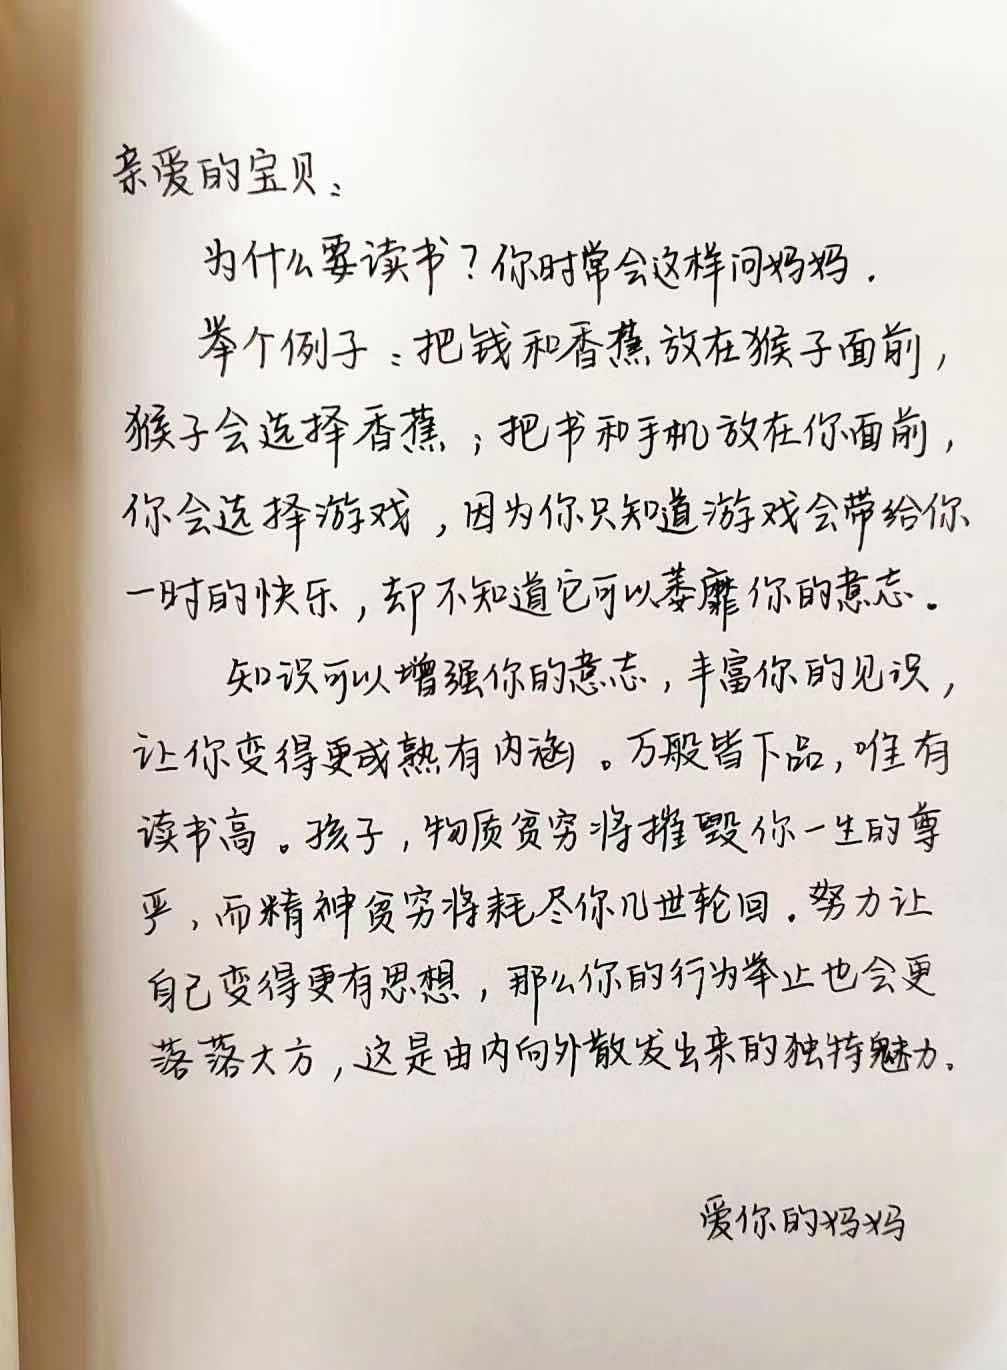 亲爱的宝贝：
为什么要读书？你时常会这样问妈妈．
举个例子：把钱和香蕉放在猴子面前，
猴子会选择香蕉；把书和手机放在你面前，
你会选择游戏，因为你只知道游戏会带给你
一时的快乐，却不知道它可以萎靡你的意志。
知识可以增强你的意志，丰富你的见识，
让你变得更成熟有内涵。万般皆下品，唯有
读书高。孩子，物质贫穷将摧毁你一生的尊
严，而精神贫穷将耗尽你几世轮回．努力让
自己变得更有思想，那么你的行为举止也会更
落落大方，这是由内向外散发出来的独特魅力。
爱你的妈妈